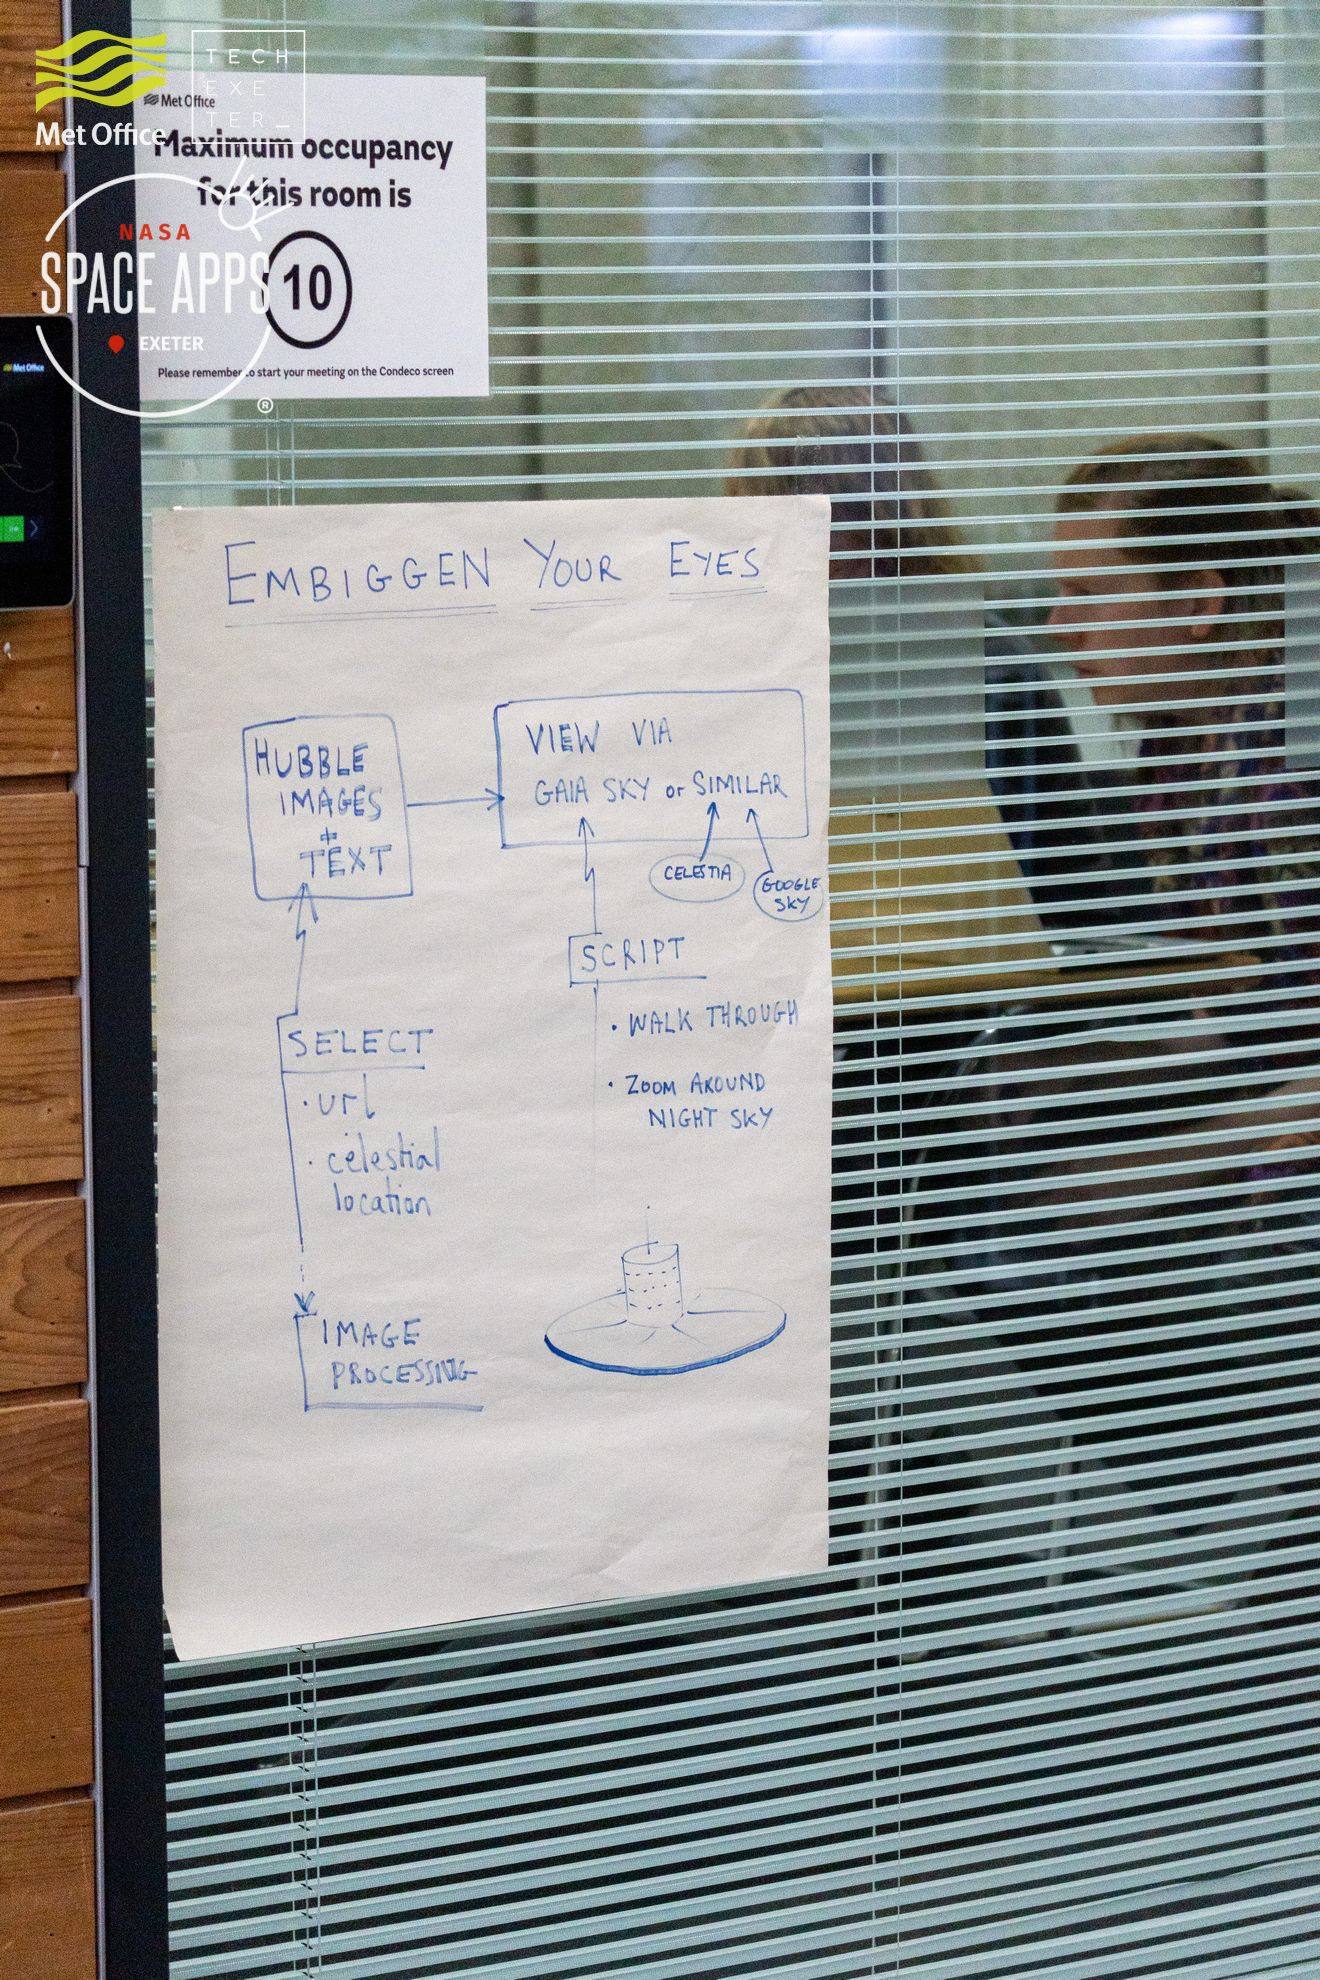 Met Office
TECH
EXE
TER_
Met Office
Maximum occupancy
for this room is
10
Please remember to start your meeting on the Condeco screen
NASA
SPACE APPS
EXETER
®
Met Office
EMBIGGEN YOUR EYES
HUBBLE
IMAGES
+
TEXT
VIEW VIA
GAIA SKY or SIMILAR
CELESTIA
GOOGLE
SKY
SCRIPT
• WALK THROUGH
• ZOOM AROUND
NIGHT SKY
SELECT
• url
• celestial
location
IMAGE
PROCESSING